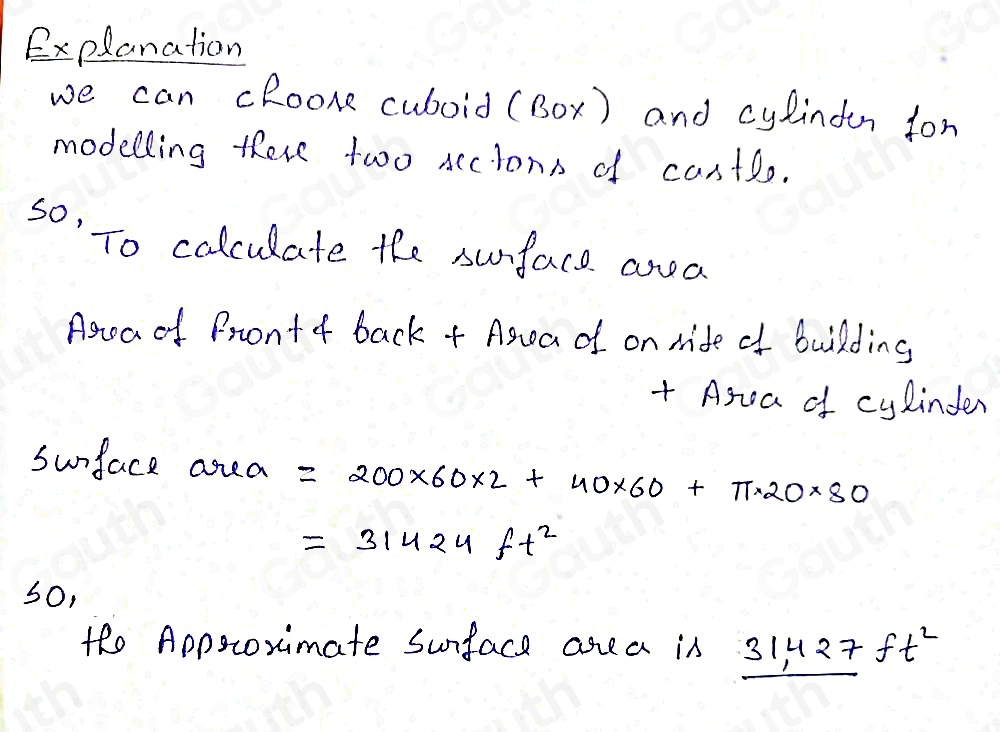 Explanation
we can choose cuboid (Box) and cylinder for
modelling these two sectons of castle.
so,
To calculate the surface area
Area of front & back + Area of on side of building
+ Area of cylinder
Surface area = 200×60×2 + 40×60 + π×20×80
= 31424 ft²
so,
the Approximate surface area is 31,427 ft²